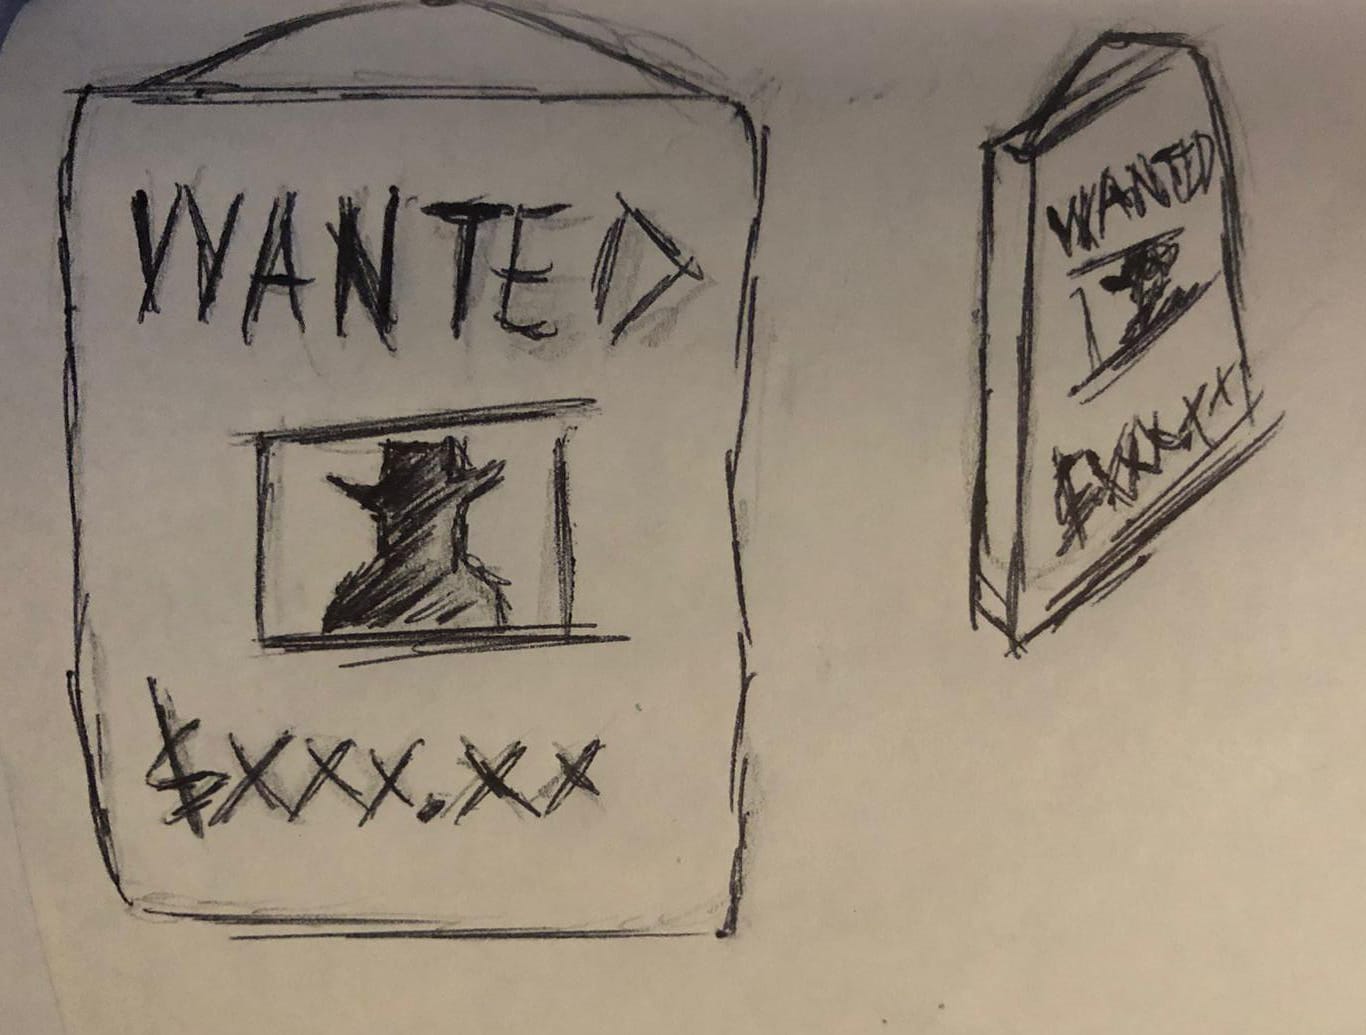 WANTED
$XXX.XX
WANTED
$XXX.XX